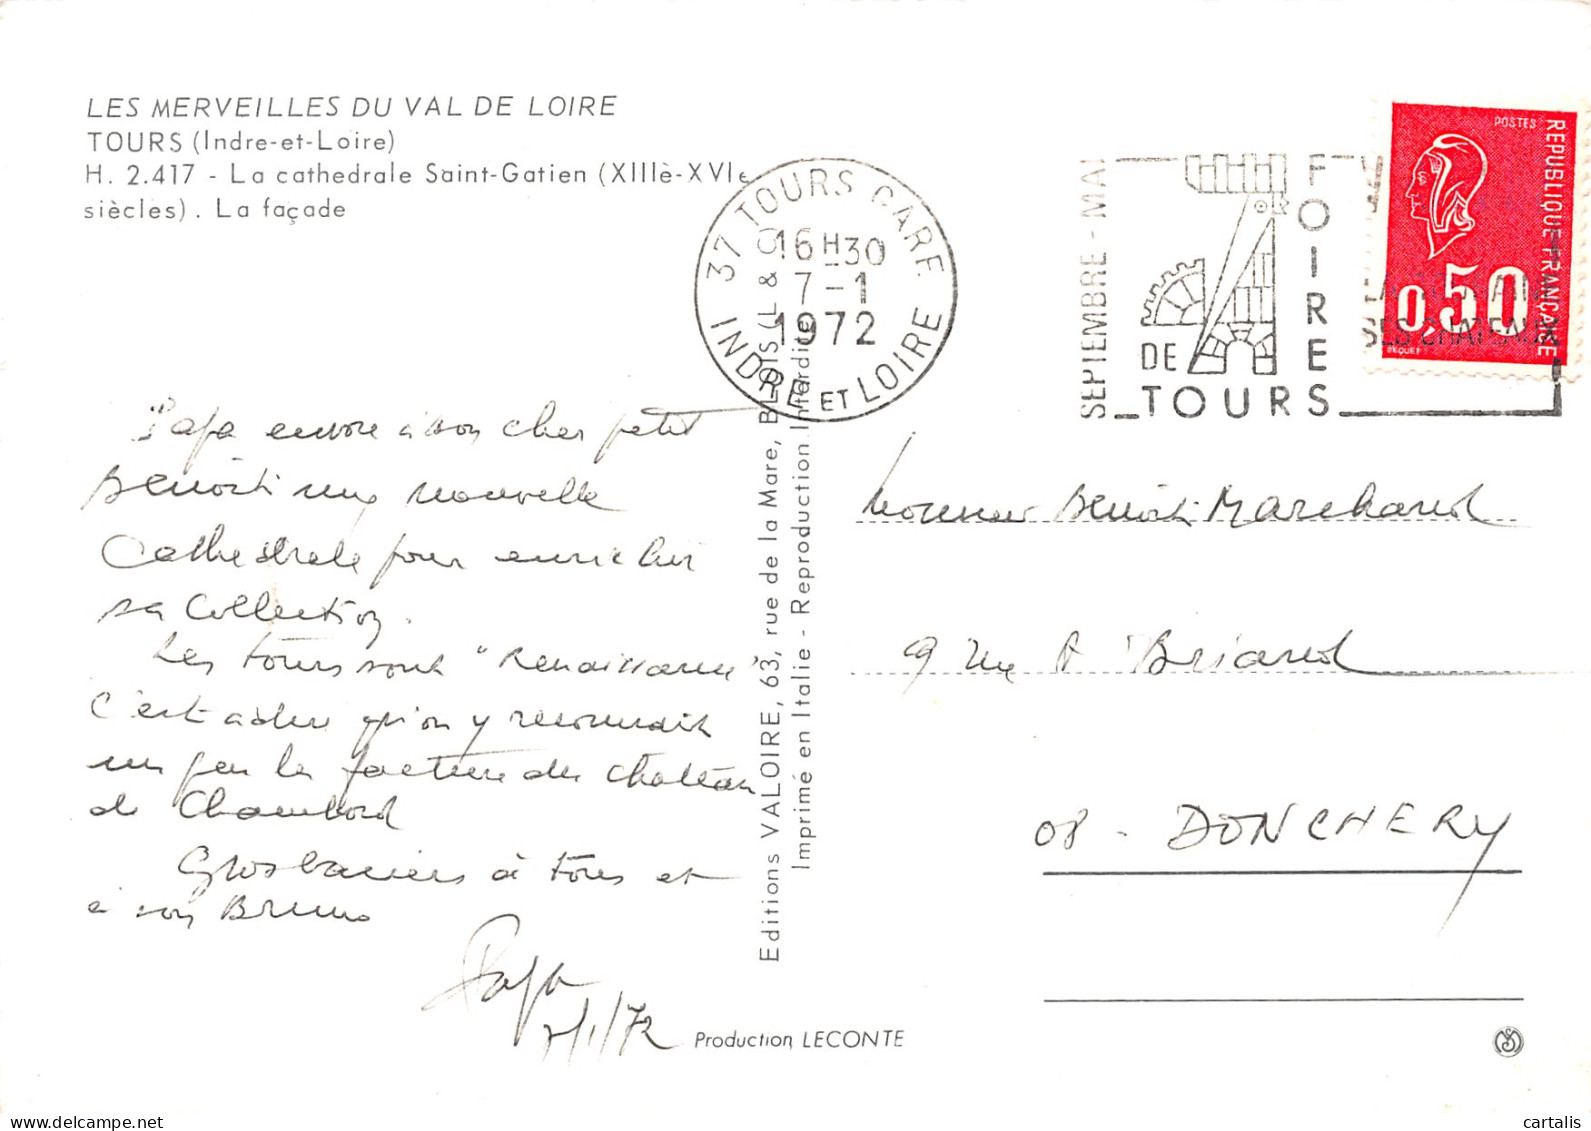 LES MERVEILLES DU VAL DE LOIRE
TOURS (Indre-et-Loire)
H. 2.417 - La cathedrale Saint-Gatien (XIIIè-XVIe
siècles). La façade
37 TOURS GARE
16H30
7-1
1972
INDRE ET LOIRE
SEPTEMBRE - MAI
FOIRES
DE
TOURS
SES CHATEAUX
POSTES
REPUBLIQUE FRANCAISE
0,50
BEQUET
Papa envoie à son cher petit
Benoît une nouvelle
Cathédrale pour enrichir
sa Collection.
Les tours sont "Renaissance"
C'est à dire qu'on y reconnait
un peu la facture du chateau
de Chambord
Gros baisers à tous et
à son Bruno
Papa
7/1/72
Editions VALOIRE, 63, rue de la Mare, BLOIS (L & C)
Imprimé en Italie - Reproduction Interdite
Monsieur Benoît Marchand
9 rue A Briand
08 - DONCHERY
Production LECONTE
cartalis
delcampe.net